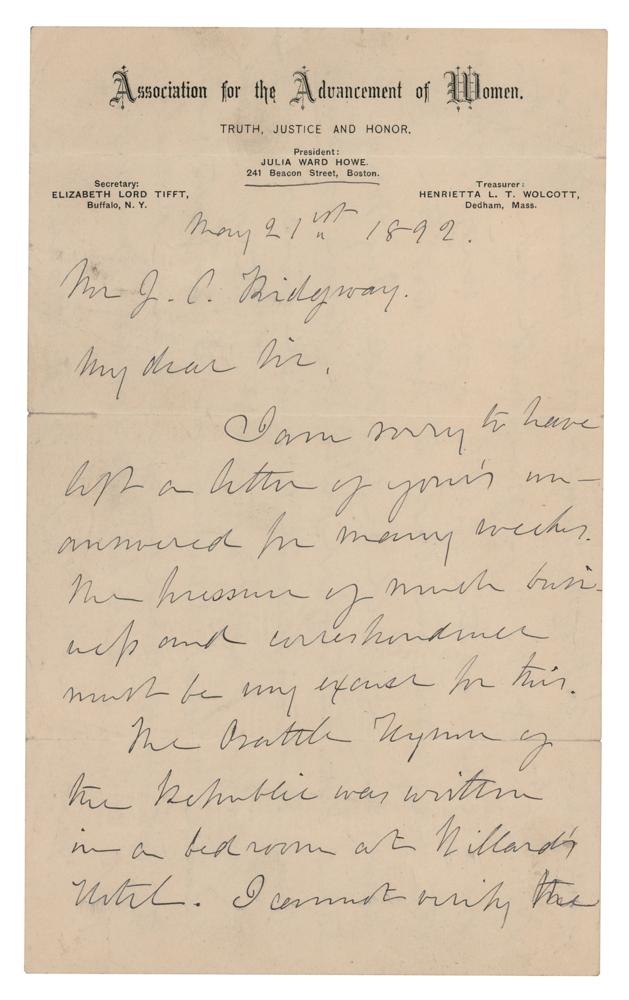 Association for the Advancement of Women.
TRUTH, JUSTICE AND HONOR.
President:
JULIA WARD HOWE.
241 Beacon Street, Boston.
Secretary:
ELIZABETH LORD TIFFT,
Buffalo, N. Y.
Treasurer:
HENRIETTA L. T. WOLCOTT,
Dedham, Mass.
May 21st 1892.
Mr J. C. Ridgway.
My dear Sir,
I am sorry to have
left a letter of your's un-
answered for many weeks.
The pressure of much busi-
ness and correspondence
must be my excuse for this.
The Battle Hymn of
the Republic was written
in a bedroom at Willard's
Hotel. I cannot verify the